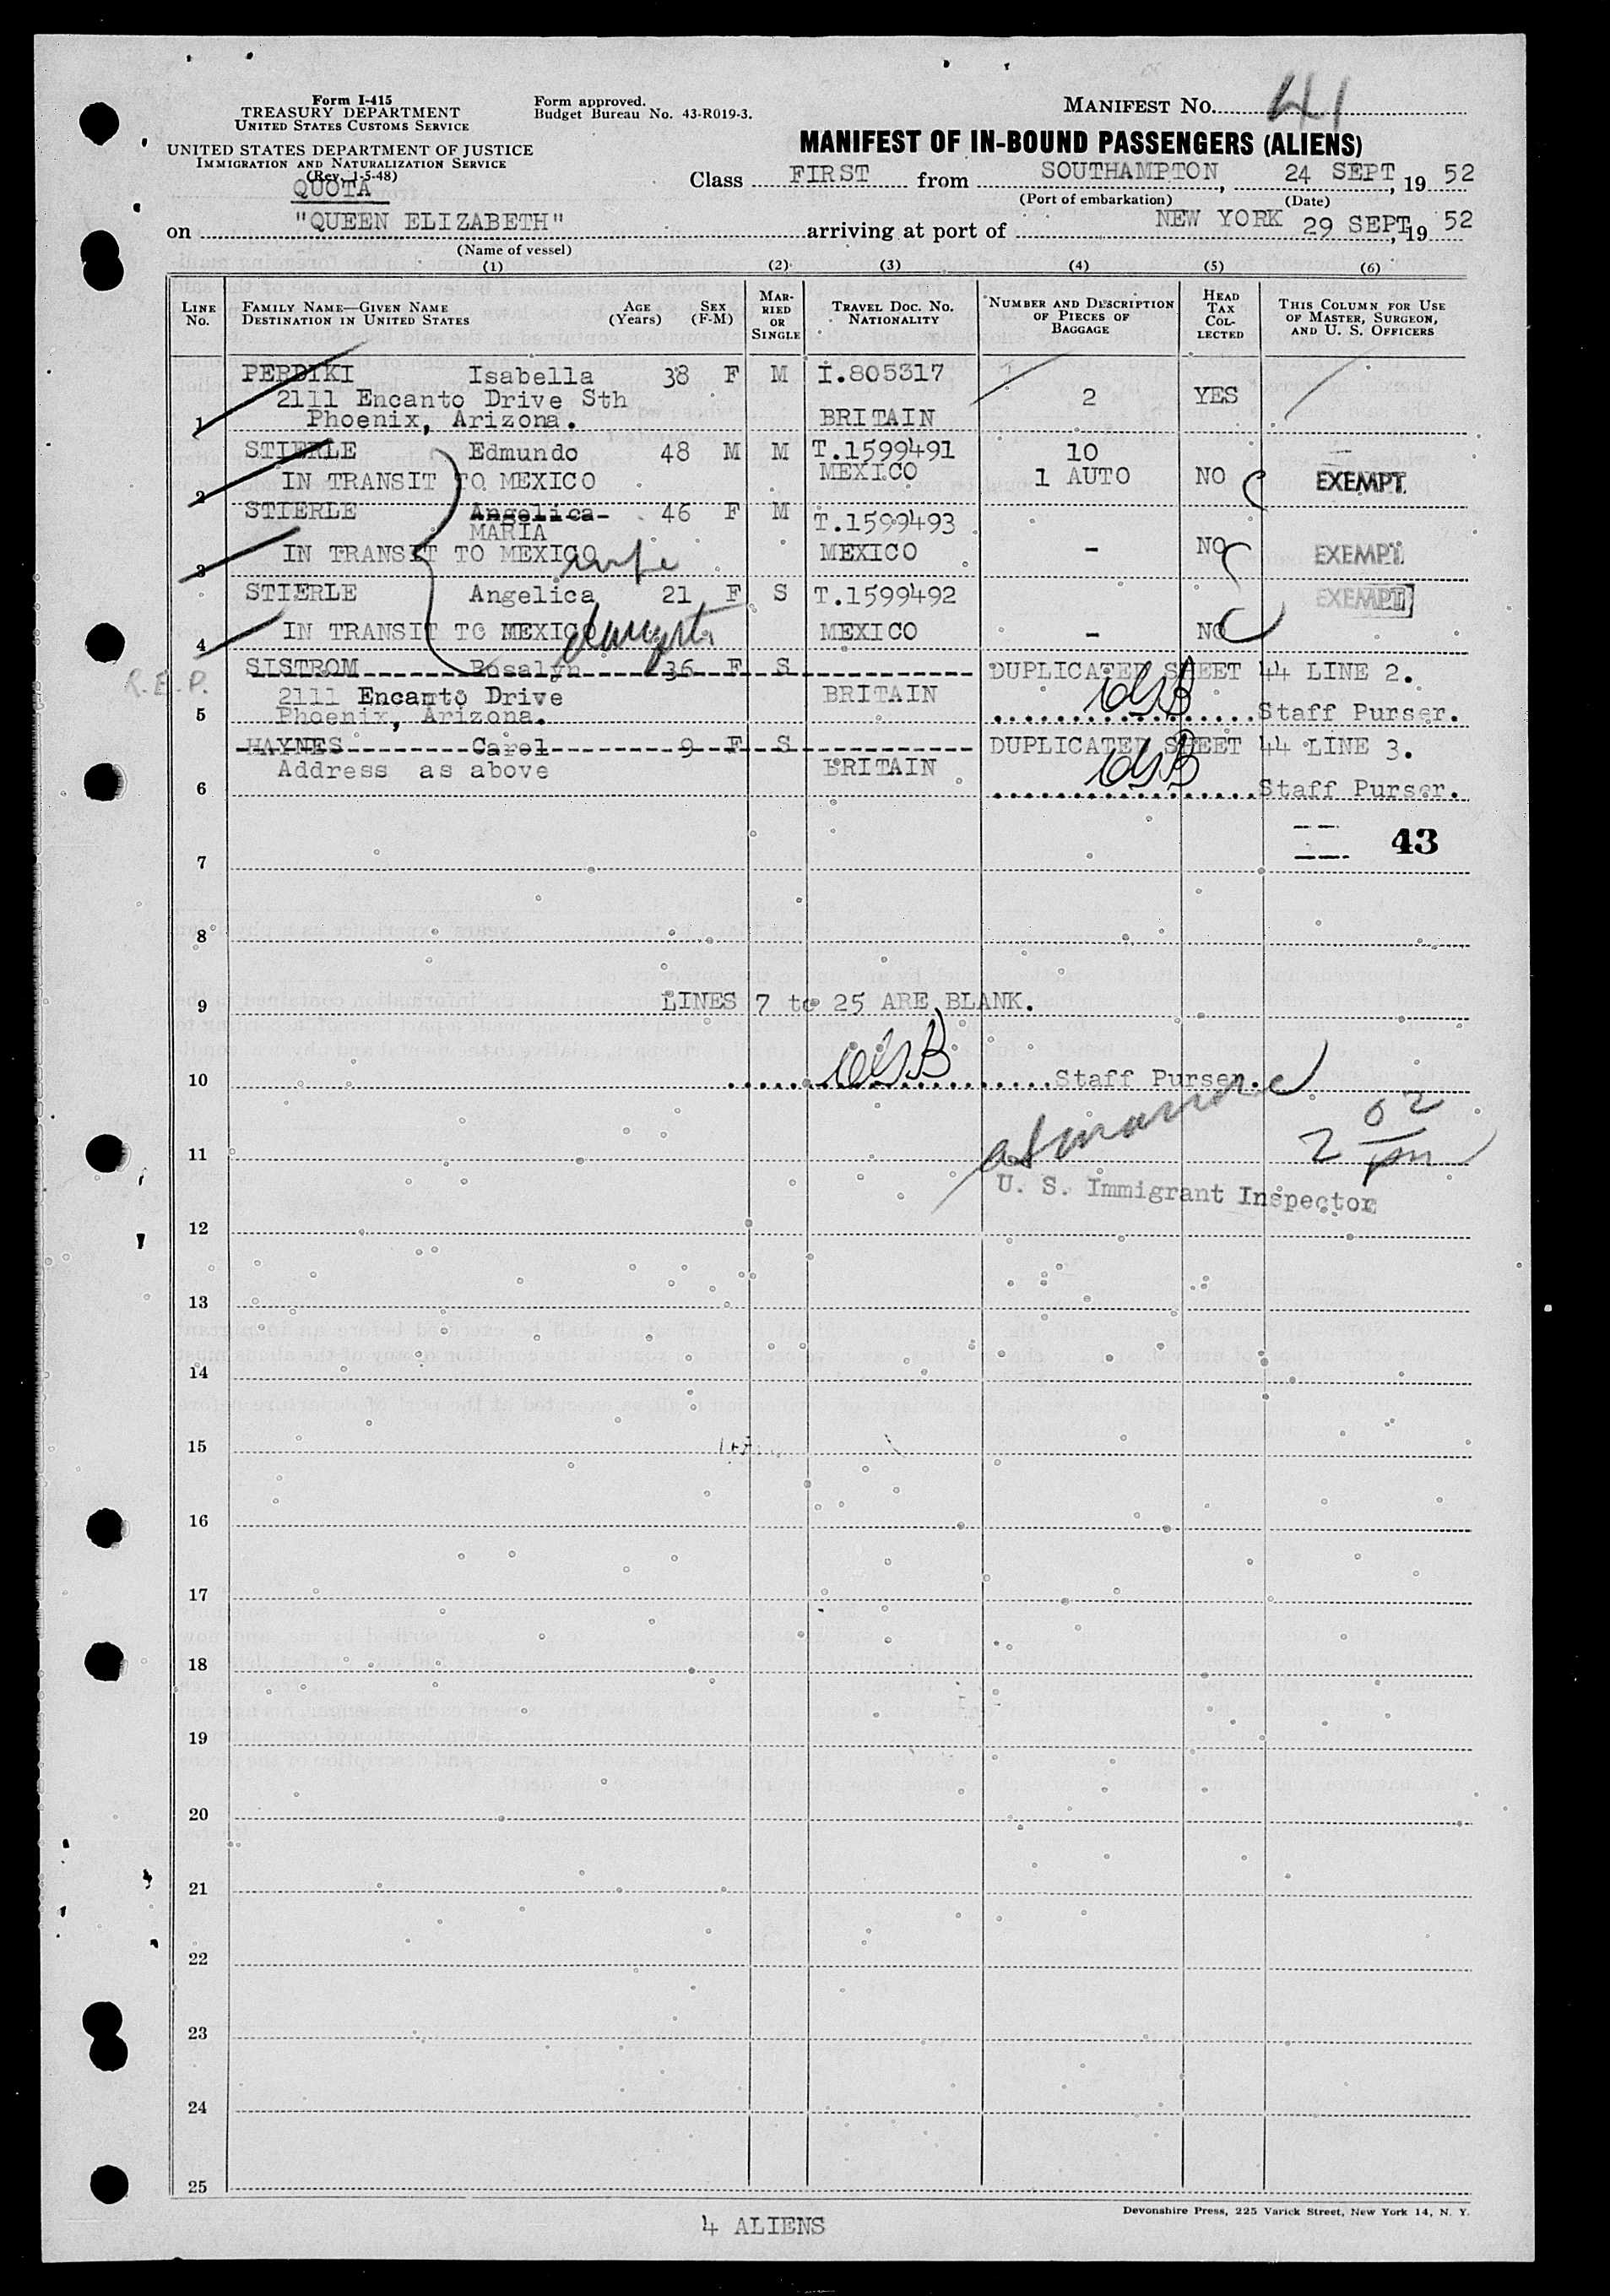 Form I-415
TREASURY DEPARTMENT
UNITED STATES CUSTOMS SERVICE
UNITED STATES DEPARTMENT OF JUSTICE
IMMIGRATION AND NATURALIZATION SERVICE
(Rev. 1-5-48)
QUOTA
Form approved.
Budget Bureau No. 43-R019-3.
MANIFEST No. 41
MANIFEST OF IN-BOUND PASSENGERS (ALIENS)
Class FIRST from SOUTHAMPTON, 24 SEPT, 19 52
(Port of embarkation) (Date)
on "QUEEN ELIZABETH" arriving at port of NEW YORK 29 SEPT, 19 52
(Name of vessel)
(1) (2) (3) (4) (5) (6)
LINE No. FAMILY NAME—GIVEN NAME DESTINATION IN UNITED STATES AGE (Years) SEX (F-M) MARRIED OR SINGLE TRAVEL DOC. No. NATIONALITY NUMBER AND DESCRIPTION OF PIECES OF BAGGAGE HEAD TAX COLLECTED THIS COLUMN FOR USE OF MASTER, SURGEON, AND U. S. OFFICERS
PERDIKI Isabella 38 F M I.805317
2111 Encanto Drive Sth 2 YES
1 Phoenix, Arizona. BRITAIN
STIERLE Edmundo 48 M M T.1599491 10
2 IN TRANSIT TO MEXICO MEXICO 1 AUTO NO EXEMPT
STIERLE Angelica 46 F M T.1599493
MARIA
3 IN TRANSIT TO MEXICO wife MEXICO - NO EXEMPT
STIERLE Angelica 21 F S T.1599492 EXEMPT
4 IN TRANSIT TO MEXICO daughter MEXICO - NO
R.E.P. SISTROM Rosalyn 36 F S DUPLICATED SHEET 44 LINE 2.
2111 Encanto Drive BRITAIN
5 Phoenix, Arizona. Staff Purser.
HAYNES Carol 9 F S DUPLICATED SHEET 44 LINE 3.
Address as above BRITAIN
6 Staff Purser.
43
7
8
9 LINES 7 to 25 ARE BLANK.
10 Staff Purser.
2 02 pm
11
U. S. Immigrant Inspector
12
13
14
15
16
17
18
19
20
21
22
23
24
25
Devonshire Press, 225 Varick Street, New York 14, N. Y.
4 ALIENS